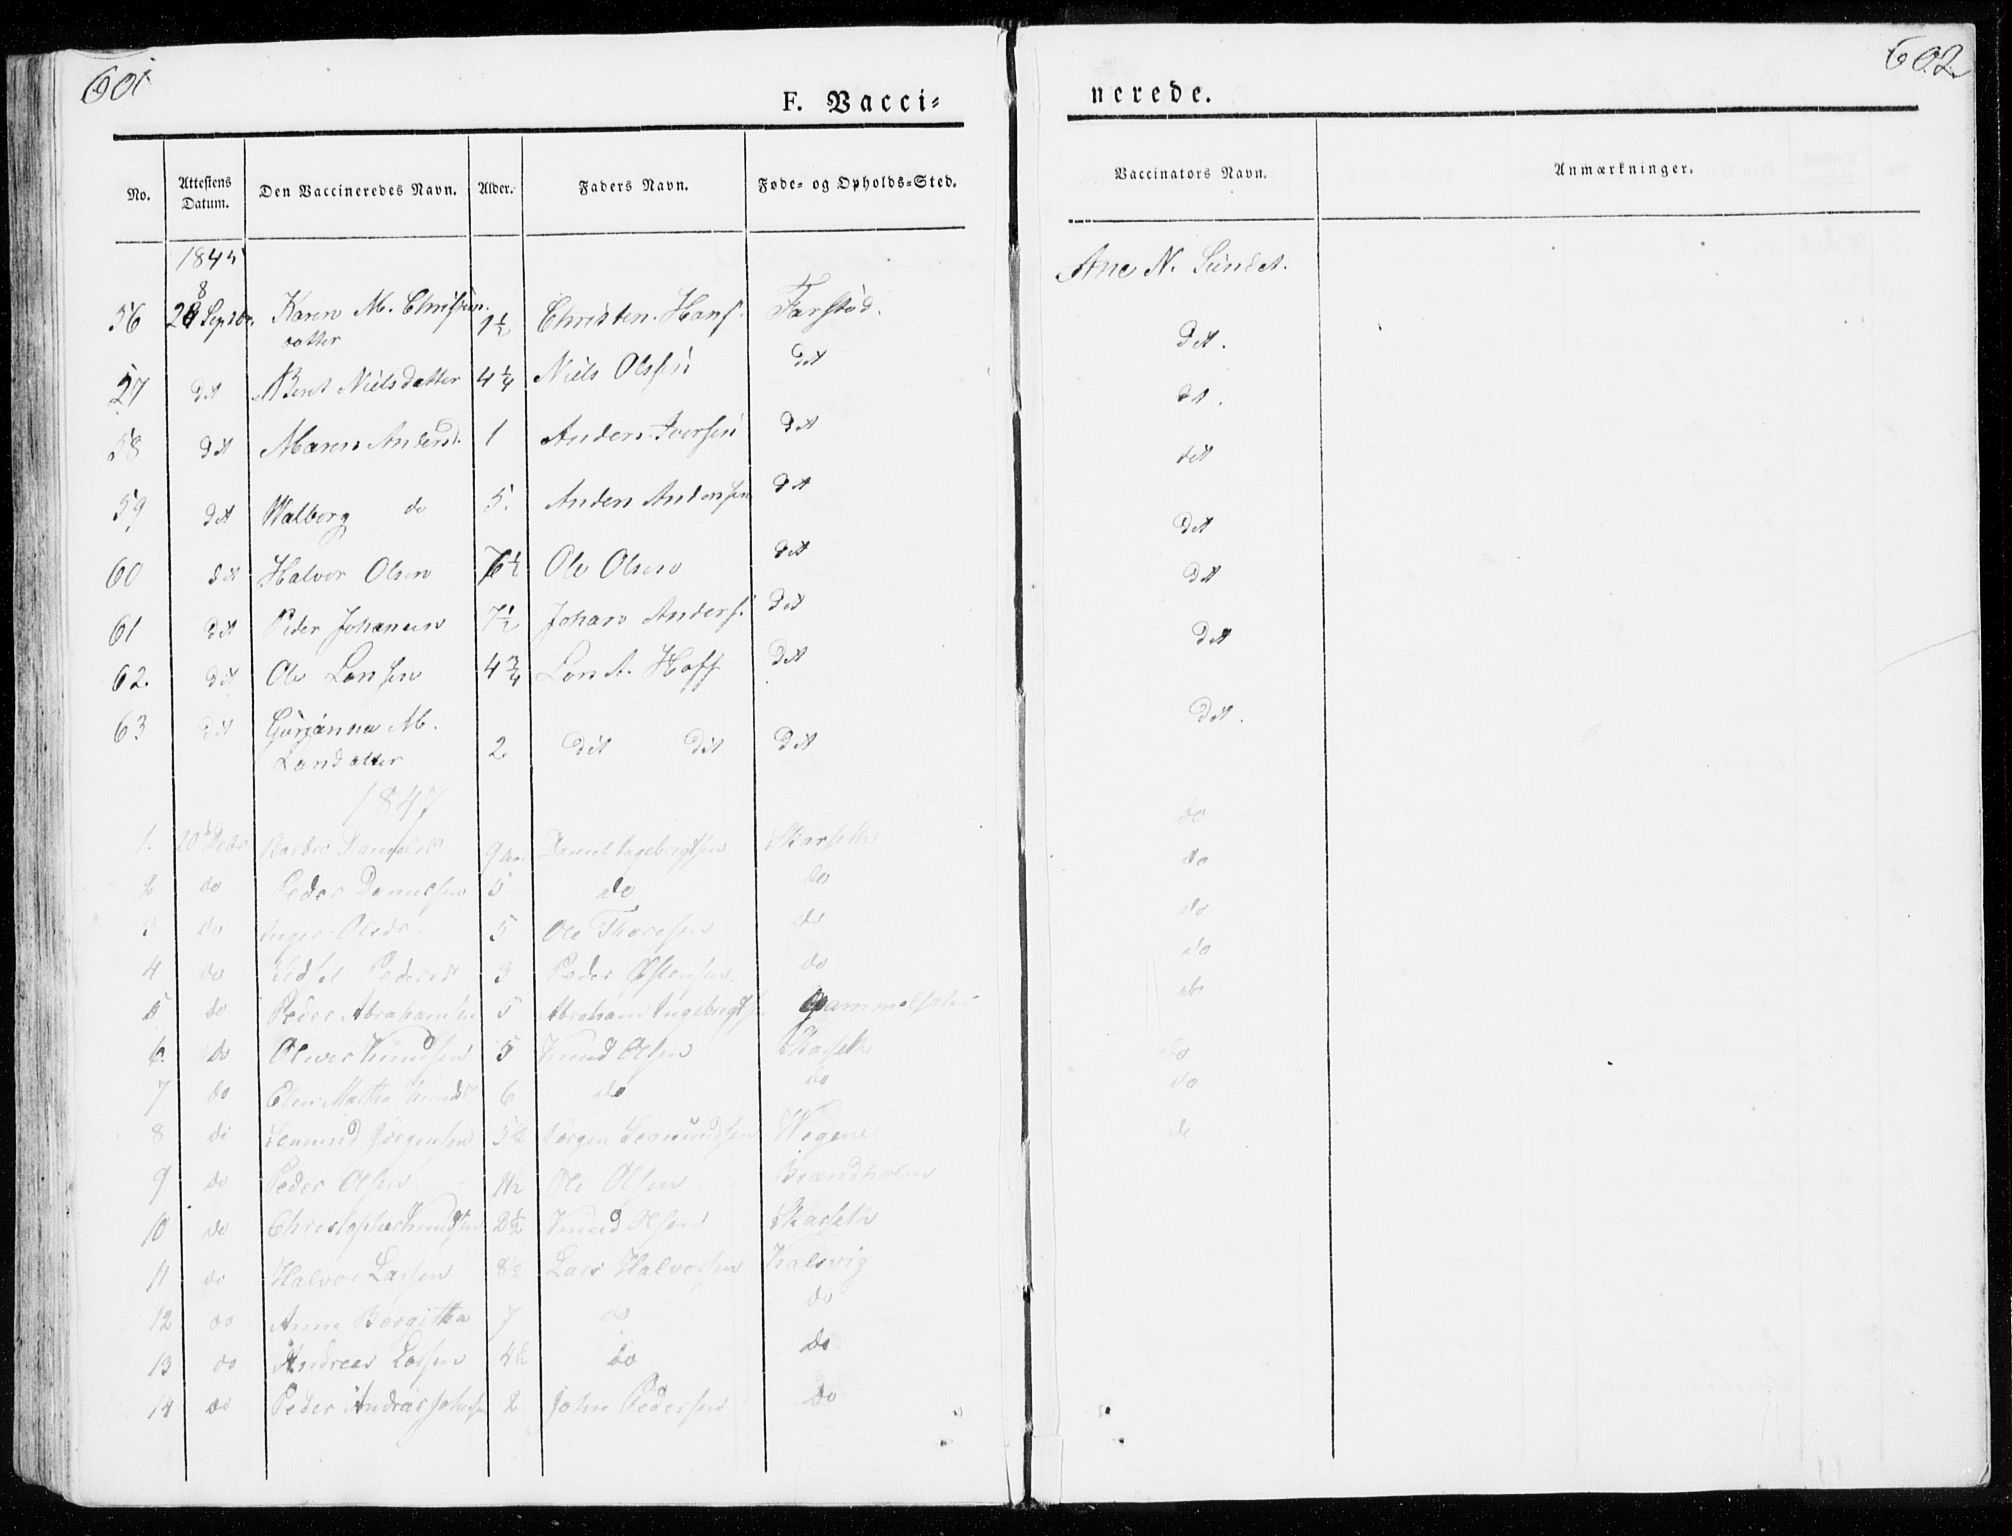 601
602
F. Vacci=
nerede.
No. Attestens Datum. Den Vaccineredes Navn. Alder. Faders Navn. Føde- og Opholds-Sted. Vaccinators Navn. Anmærkninger.
1845
Ane N. Sundet.
56 28 Septbr. Karen M. Christen- 1½ Christen Hans. Farstad. dit.
datter
57 dit Berit Nielsdatter 4¼ Niels Olsen dit dt.
58 dit Maren Andersd. 1 Anders Iversen dit dit
59 dit Walborg do 5. Anders Andersen dit dit
60 dit Halvor Olsen 6½ Ole Olsen dit dit
61 dit Peder Johansen 7½ Johan Anders. dit dit
62. dit Ole Larsen 4¾ Lars A. Hoff dit dit.
63 dit Gurianna M.
Larsdatter 2 dit dit dit
1847
1. Barbro Danielsd 9 Daniel Ingebrigtsen Skarseth do
2 do Peder Danielsen 5 do do do
3 do Inger Olsdr 5 Ole Thoresen do do
4 do Sidsel Pedersd 3 Peder Østensen do do
5 do Peder Abrahamsen 5 Abraham Ingebrigtsen do
6. do Oliver Knudsen 5 Knud Olsen Skarseth do
7 do Elen Martha Knudsd 6 do do do
8 do Jørgensen 5½ Jørgen Wegene do
9 do Peder Olsen 1½ Ole Olsen Brandholm
10 do Christopher Knudsen 2½ Knud Olsen Skarseth
11 do Halvor Larsen 8½ Lars Halvorsen Kalsvig
12 do Anne Bergitha 7 do do
13 do Andreas Larsen 4½ do do
14 do Peder Andreas Johnsen 2 John Pedersen do